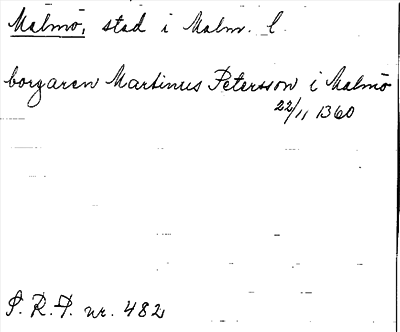 Malmö, stad i Malm. l.
borgaren Martinus Petersson i Malmö
22/11 1360
S. R. P. nr. 482